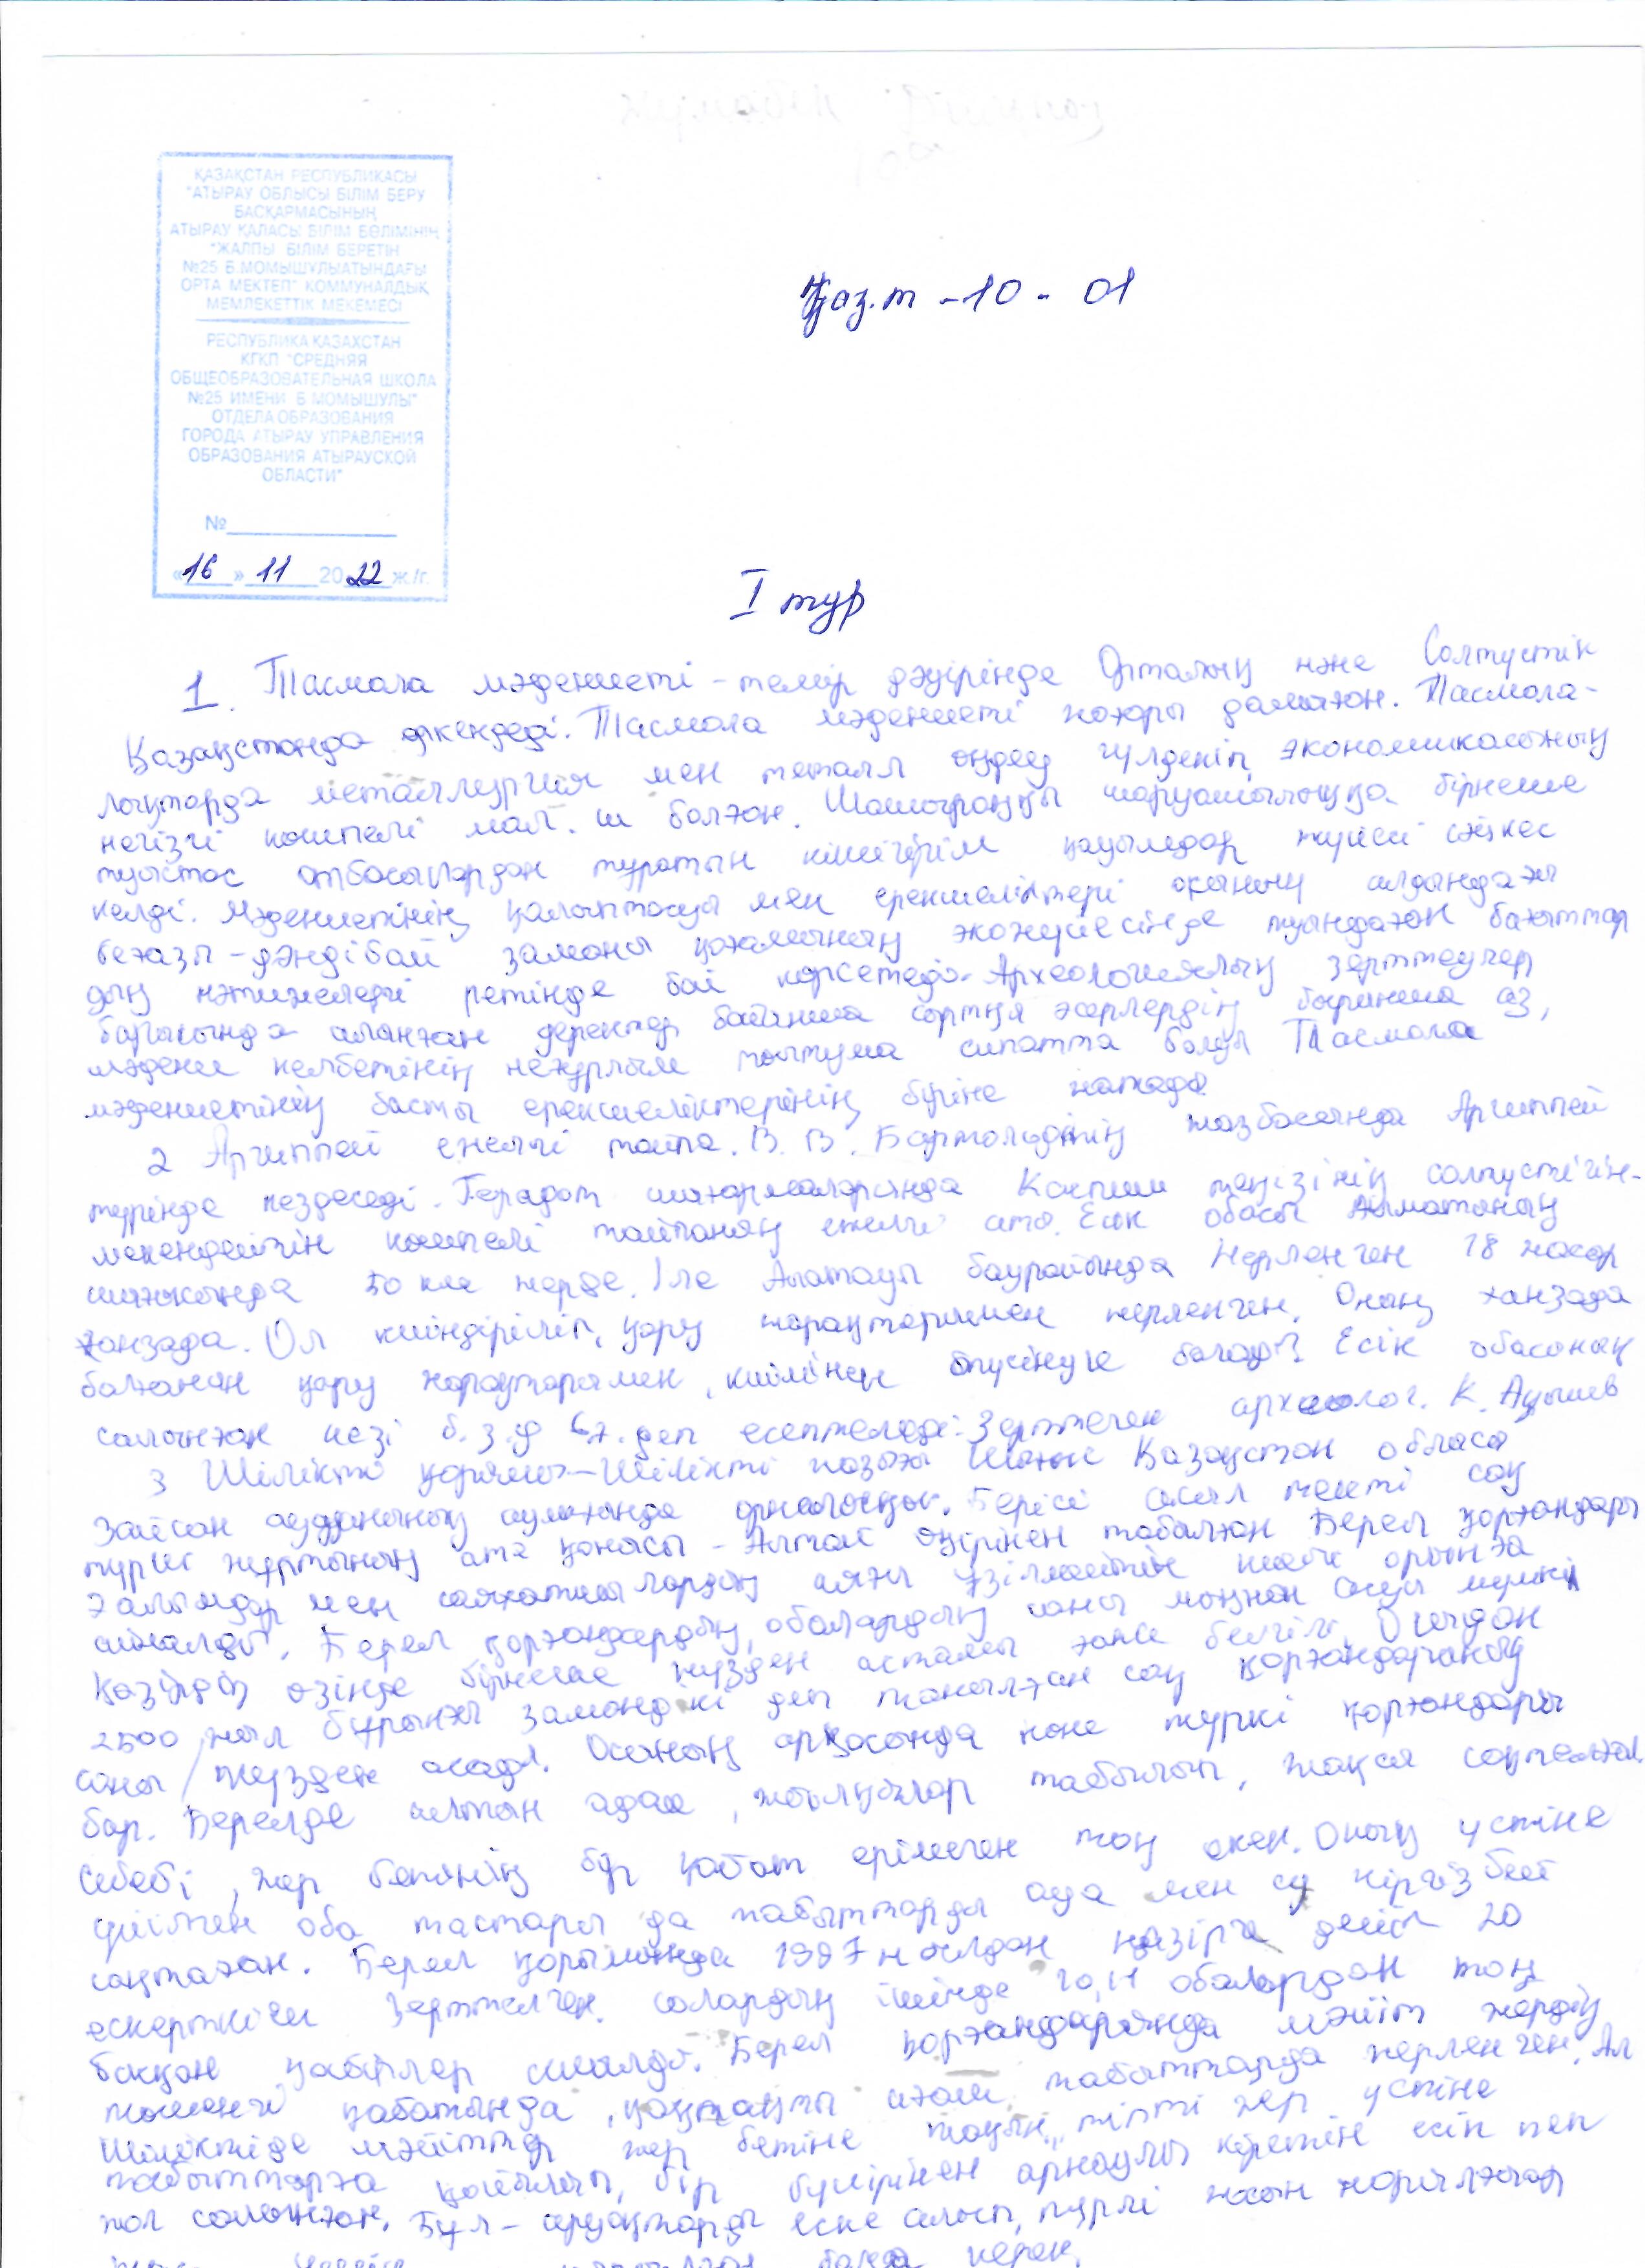 ҚАЗАҚСТАН РЕСПУБЛИКАСЫ
"АТЫРАУ ОБЛЫСЫ БІЛІМ БЕРУ
БАСҚАРМАСЫНЫҢ
АТЫРАУ ҚАЛАСЫ БІЛІМ БӨЛІМІНІҢ
"ЖАЛПЫ БІЛІМ БЕРЕТІН
№25 Б.МОМЫШҰЛЫ АТЫНДАҒЫ
ОРТА МЕКТЕП" КОММУНАЛДЫҚ
МЕМЛЕКЕТТІК МЕКЕМЕСІ
РЕСПУБЛИКА КАЗАХСТАН
КГКП "СРЕДНЯЯ
ОБЩЕОБРАЗОВАТЕЛЬНАЯ ШКОЛА
№25 ИМЕНИ Б МОМЫШУЛЫ"
ОТДЕЛА ОБРАЗОВАНИЯ
ГОРОДА АТЫРАУ УПРАВЛЕНИЯ
ОБРАЗОВАНИЯ АТЫРАУСКОЙ
ОБЛАСТИ"
№
«16» 11 2022 ж./г.
Қаз.т - 10 - 01
I тур
1. Тасмола мәдениеті - темір дәуірінде Орталық және Солтүстік
Қазақстанда өркендеді. Тасмола мәдениеті жоғары дамыған. Тасмола-
лықтарда металлургия мен металл өңдеу гүлденіп, экономикасының
негізгі көшпелі мал. ш болған. Шашыраңқы шаруашылыққа бірнеше
туыстас отбасылардан тұратын кішігірім қауымдар жүйесі сәйкес
келді. Мәдениетінің қалыптасуы мен ерекшеліктері оқының алдындағы
беғазы - дәндібай заманы қоғамының экожүйесінде туындаған бағыттар
дың нәтижелері ретінде бой көрсетеді. Археологиялық зерттеулер
барысында алынған деректер бойынша сыртқы әсерлердің барынша аз,
мәдени келбетінің неғұрлым тылтума сипатта болуы Тасмола
мәдениетінің басты ерекшеліктерінің біріне жатады.
2 Аргиппей ежелгі тайпа. В. В. Бартольдтің жазбасында Аргиппей
түрінде кездеседі. Геродот шығармаларында Каспии теңізінің солтүстігін-
мекендейтін көшпелі тайпаның ежелгі аты. Есік обасы Алматының
шығысында 50 км жерде. Іле Алатауы баурайында Жерленген 18 жасар
ханзада. Ол киіндіріліп, қару жарақтарымен жерленген. Оның ханзада
болғанын қару жарақтарымен, киімінен түсінуге болады. Есік обасының
салынған кезі б.з.д 6ғ. деп есептеледі. Зерттеген археолог. К. Ақышев
3 Шілікті қорымы - Шілікті жазығы Шығыс Қазақстан облысы
Зайсан ауданының аумағында орналасқан. Берісі сақ
түркі жұртының ата қонысы - Алтай өңірінен табылған Берел қорғандары
ғалымдар мен саяхатшылардың аяғы үзілмейтін киелі орынға
айналды. Берел қорғандардың, обалардың саны мыңнан асуы мүмкін
Қазірдің өзінде бірнеше жүзден астамы ғана белгілі. Осыдан
2500 жыл бұрынғы замандікі деп танылған сақ қорғандарының
саны жүзден асады. Осының арқасында көне түркі қорғандары
бар. Берелде алтын адам, жылқылар табылып, жақсы сақталған
себебі, жер бетінің бір қабат ерімеген тоң екен. Оның үстіне
үйілген оба тастары да табыттарды ауа мен су кіргізбей
сақтаған. Берел қорымында 1997 жылдан қазірге дейін 20
ескерткіш зерттелген. солардың ішінде 10,11 обалардан тоң
басқан қабірлер ашылды. Берел қорғандарында мәйіт жердің
төменгі қабатында, қақпақты ағаш табыттарда жерленген. Ал
Шіліктіде мәйіттер жер бетіне жақын, тіпті жер үстіне
табыттарға қойылып, бір бүйірінен арнаулы кіретін есік пен
жол салынған. Бұл - аруақтарды еске алып, түрлі
болса керек.